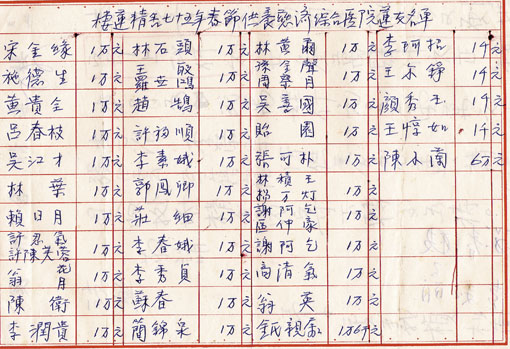 樓蓮精舍七十五年春節供養慈濟綜合医院蓮友名單
宋金緣 1万元 林石頭 1万元 林黃爾 1万元 李阿松 1千元
施德生 1万元 王殷 羅世鴻 1万元 孫全聲 周榮月 1万元 王尔錚 1千元
黃貴全 1万元 趙鵠 1万元 吳喜國 1万元 顏秀玉 1千元
呂春枝 1万元 許初順 1万元 貽園 1万元 王惇如 1千元
吳江才 1万元 李素娥 1万元 張可朴 1万元 陳水蘭 6万元
林葉 1万元 郭鳳卿 1万元 林楨王 楊万灯 1万元
賴日月 1万元 莊細 1万元 謝阿乞 區仲豪 1万元
許忍氣 許陳芙蓉 1万元 李春娥 1万元 謝阿乞 1万元
翁花月 1万元 李秀貞 1万元 高清氣 1万元
陳衛 1万元 蘇春 1万元 翁英 1万元
李潤貴 1万元 簡錦泉 1万元